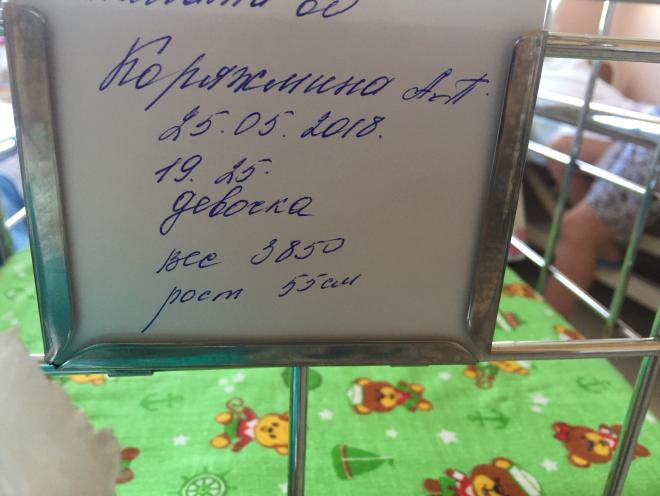 Коряжмина А.П.
25.05.2018.
19.25.
девочка
вес 3850
рост 55см